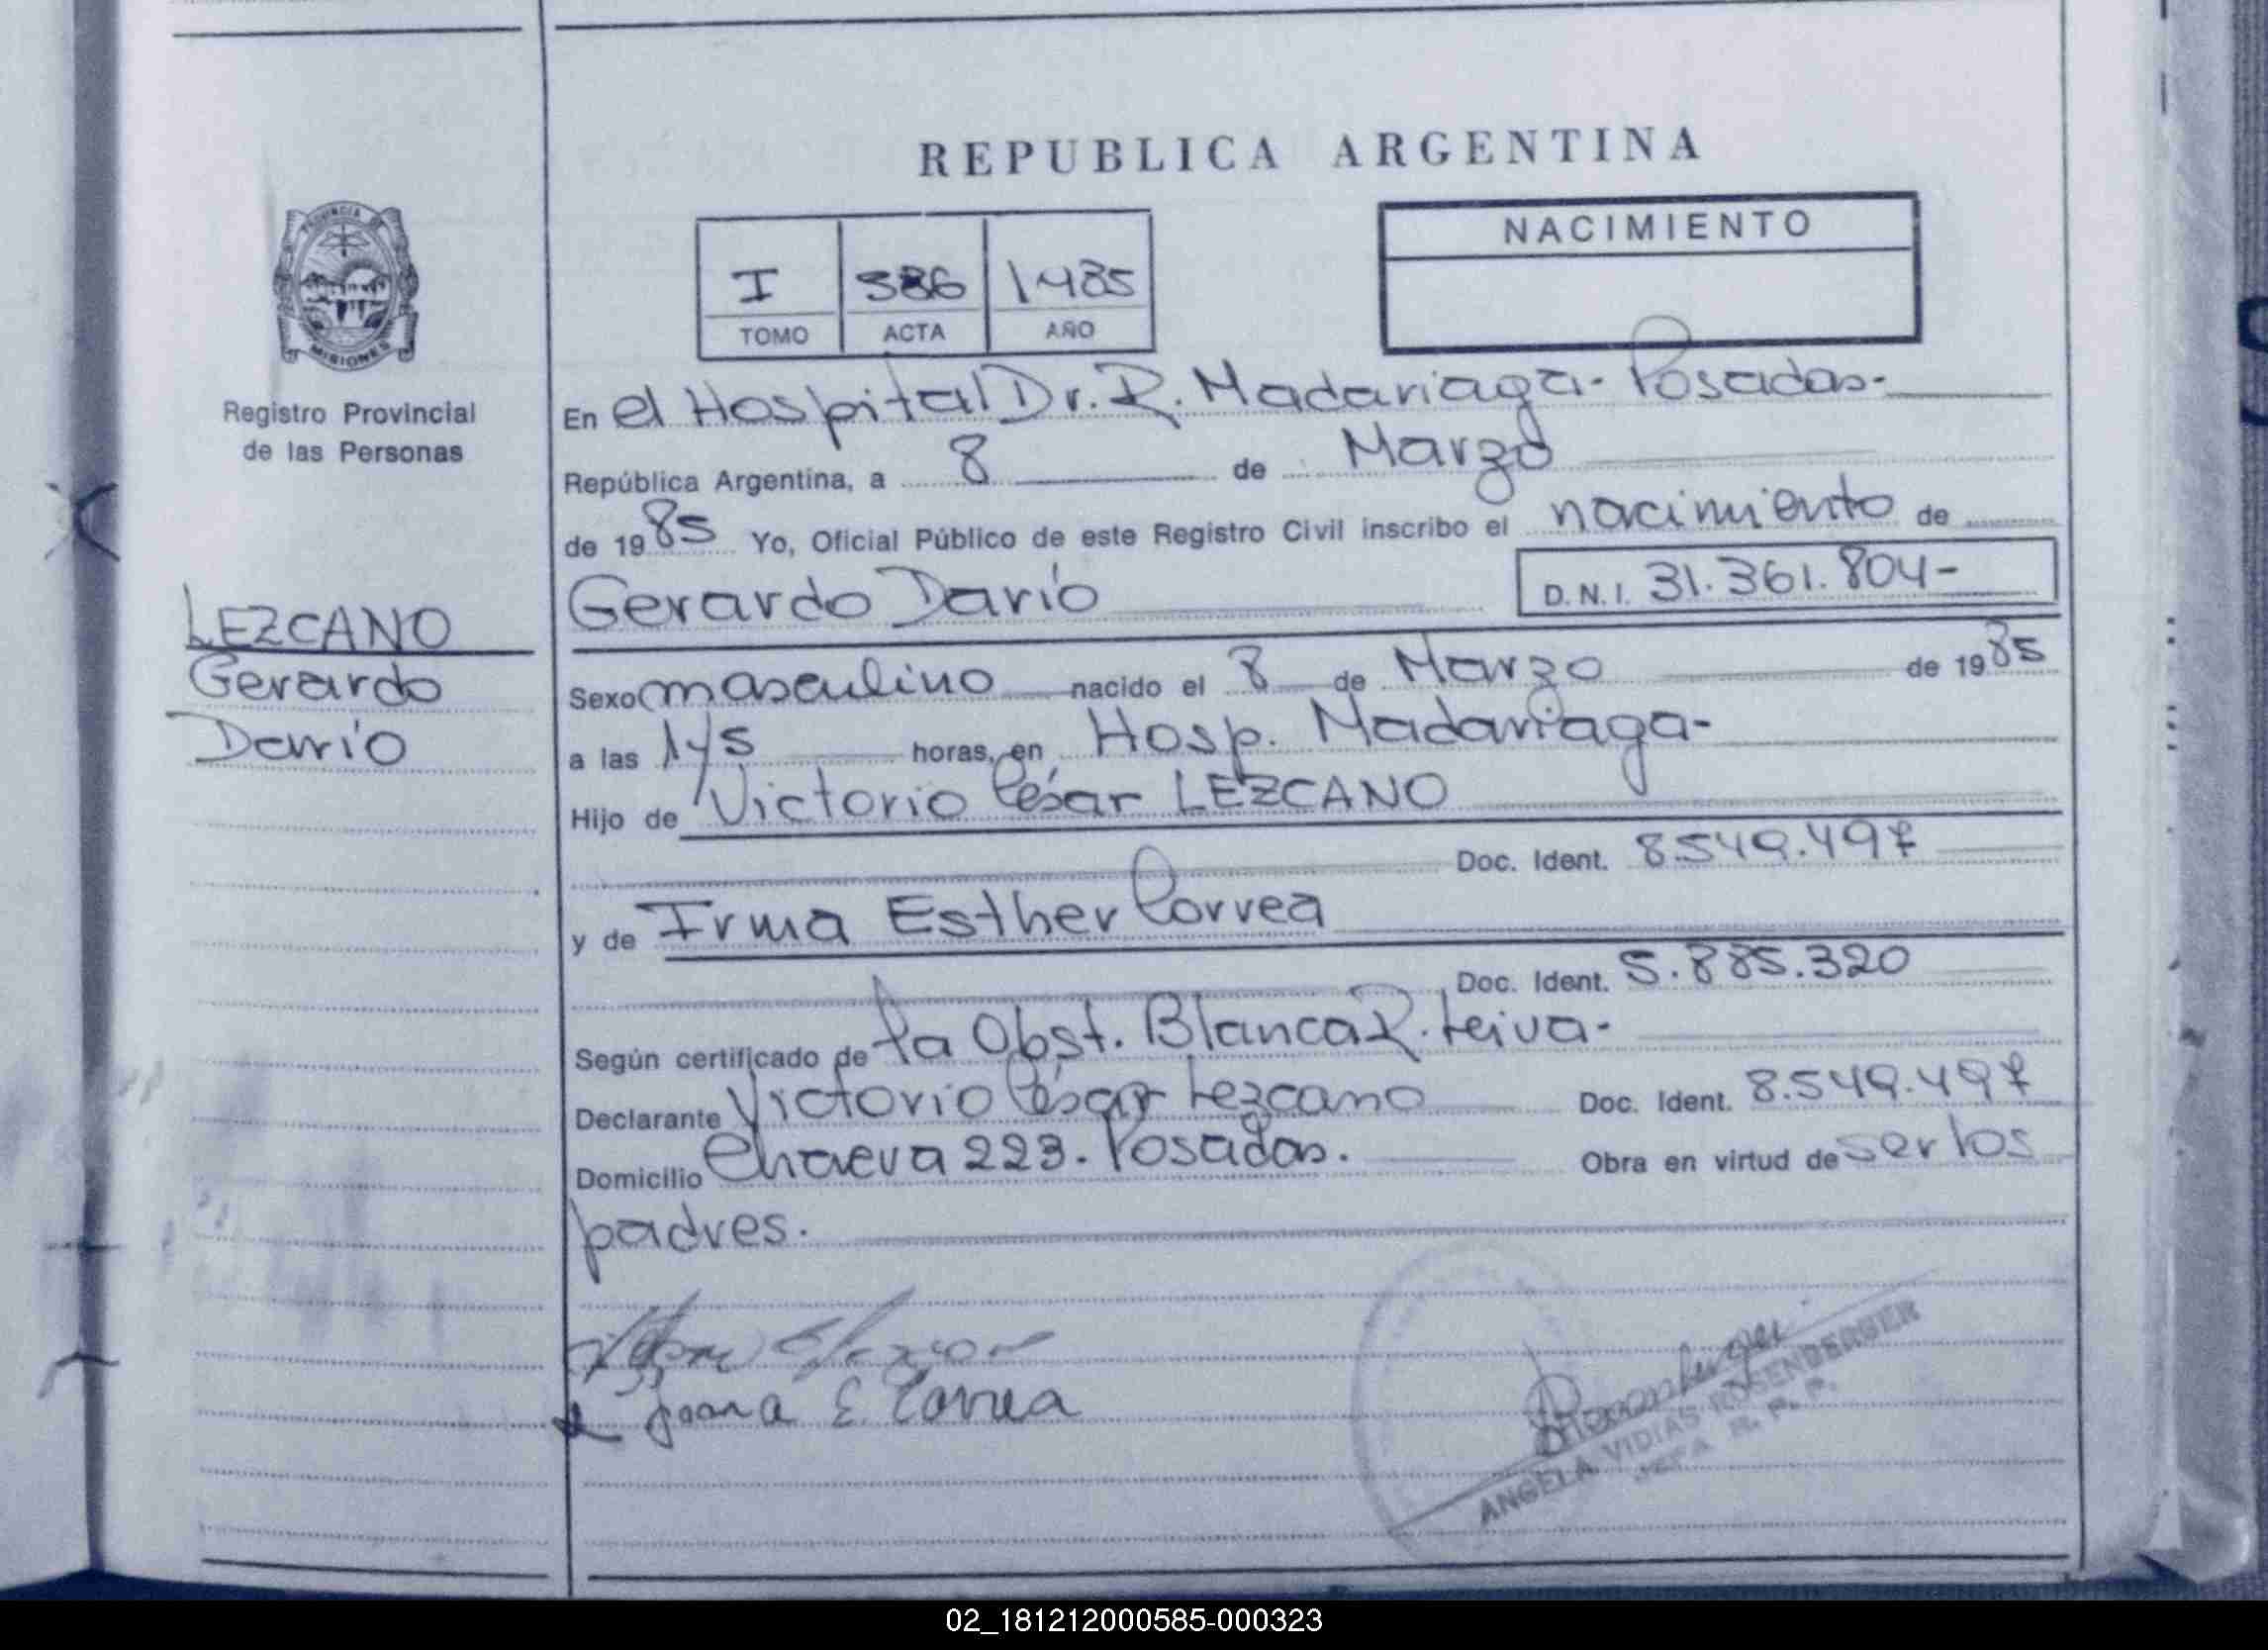 REPUBLICA ARGENTINA
PROVINCIA DE
MISIONES
Registro Provincial
de las Personas
I 386 1985
TOMO ACTA AÑO
NACIMIENTO
En el Hospital Dr. R. Madariaga - Posadas -
República Argentina, a 8 de Marzo
de 1985 Yo, Oficial Público de este Registro Civil inscribo el nacimiento de
Gerardo Darío D.N.I. 31.361.804 -
LEZCANO
Gerardo
Darío
Sexo masculino nacido el 8 de Marzo de 1985
a las 1y5 horas, en Hosp. Madariaga -
Hijo de Victorio César LEZCANO
Doc. Ident. 8.549.497
y de Irma Esther Correa
Doc. Ident. 5.885.320
Según certificado de la Obst. Blanca R. Leiva -
Declarante Victorio César Lezcano Doc. Ident. 8.549.497
Domicilio 223. Posadas. Obra en virtud de ser los
padres.
E. Correa
ANGELA VIDIAS ROSENBERGER
JEFA R. P. P.
02_181212000585-000323